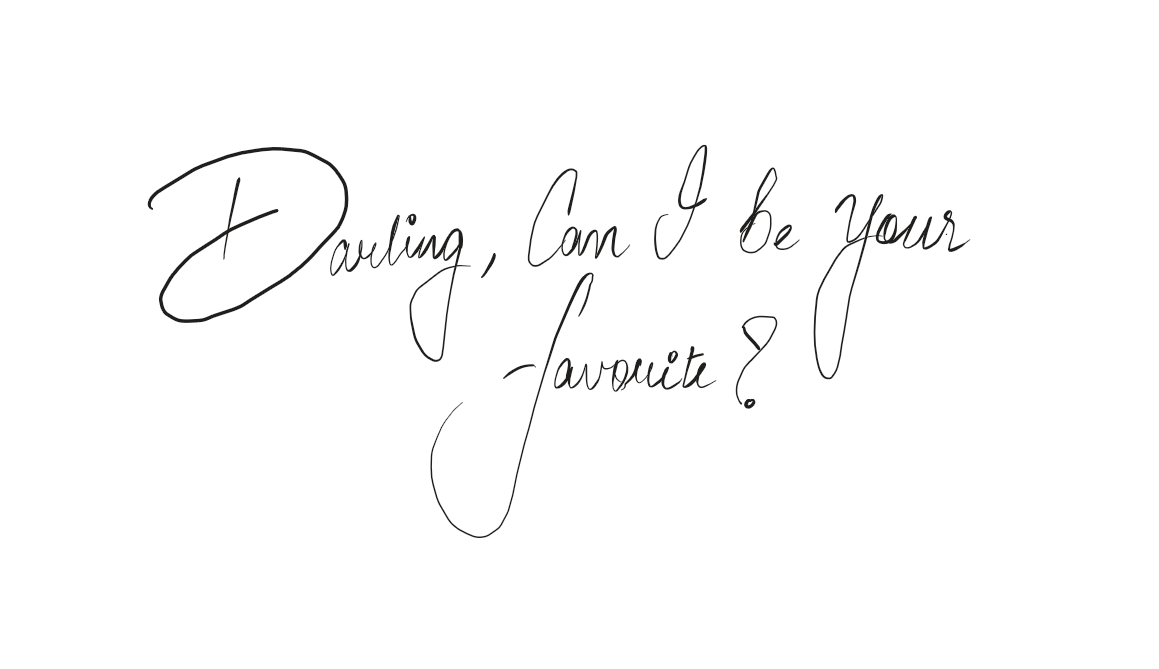 Darling, Can I be your
favorite?